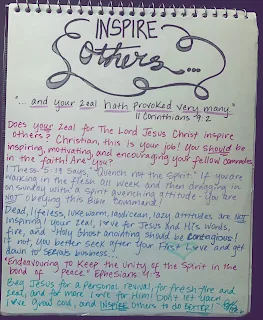 INSPIRE
Others...
"...and your zeal hath provoked very many."
II Corinthians 9:2
Does your zeal for The Lord Jesus Christ inspire
others? Christian, this is your job! You should be
inspiring, motivating, and encouraging your fellow comrades
in the faith! Are you?
I Thess. 5:19 says, "Quench not the Spirit." If you are
walking in the flesh all week and then dragging in
on Sunday with a spirit quenching attitude - you are
NOT obeying this Bible command!
Dead, lifeless, lukewarm, laodicean, lazy attitudes are NOT
inspiring! Your zeal, love for Jesus and His words,
fire, and Holy Ghost anointing should be contagious!
If not, you better seek after your First Love and get
down to serious business...
"Endeavouring to keep the unity of the Spirit in the
bond of peace." Ephesians 4:3
Beg Jesus for a personal revival, for fresh fire and
zeal, and for more love for Him! Don't let your
love grow cold, and INSPIRE others to do BETTER!